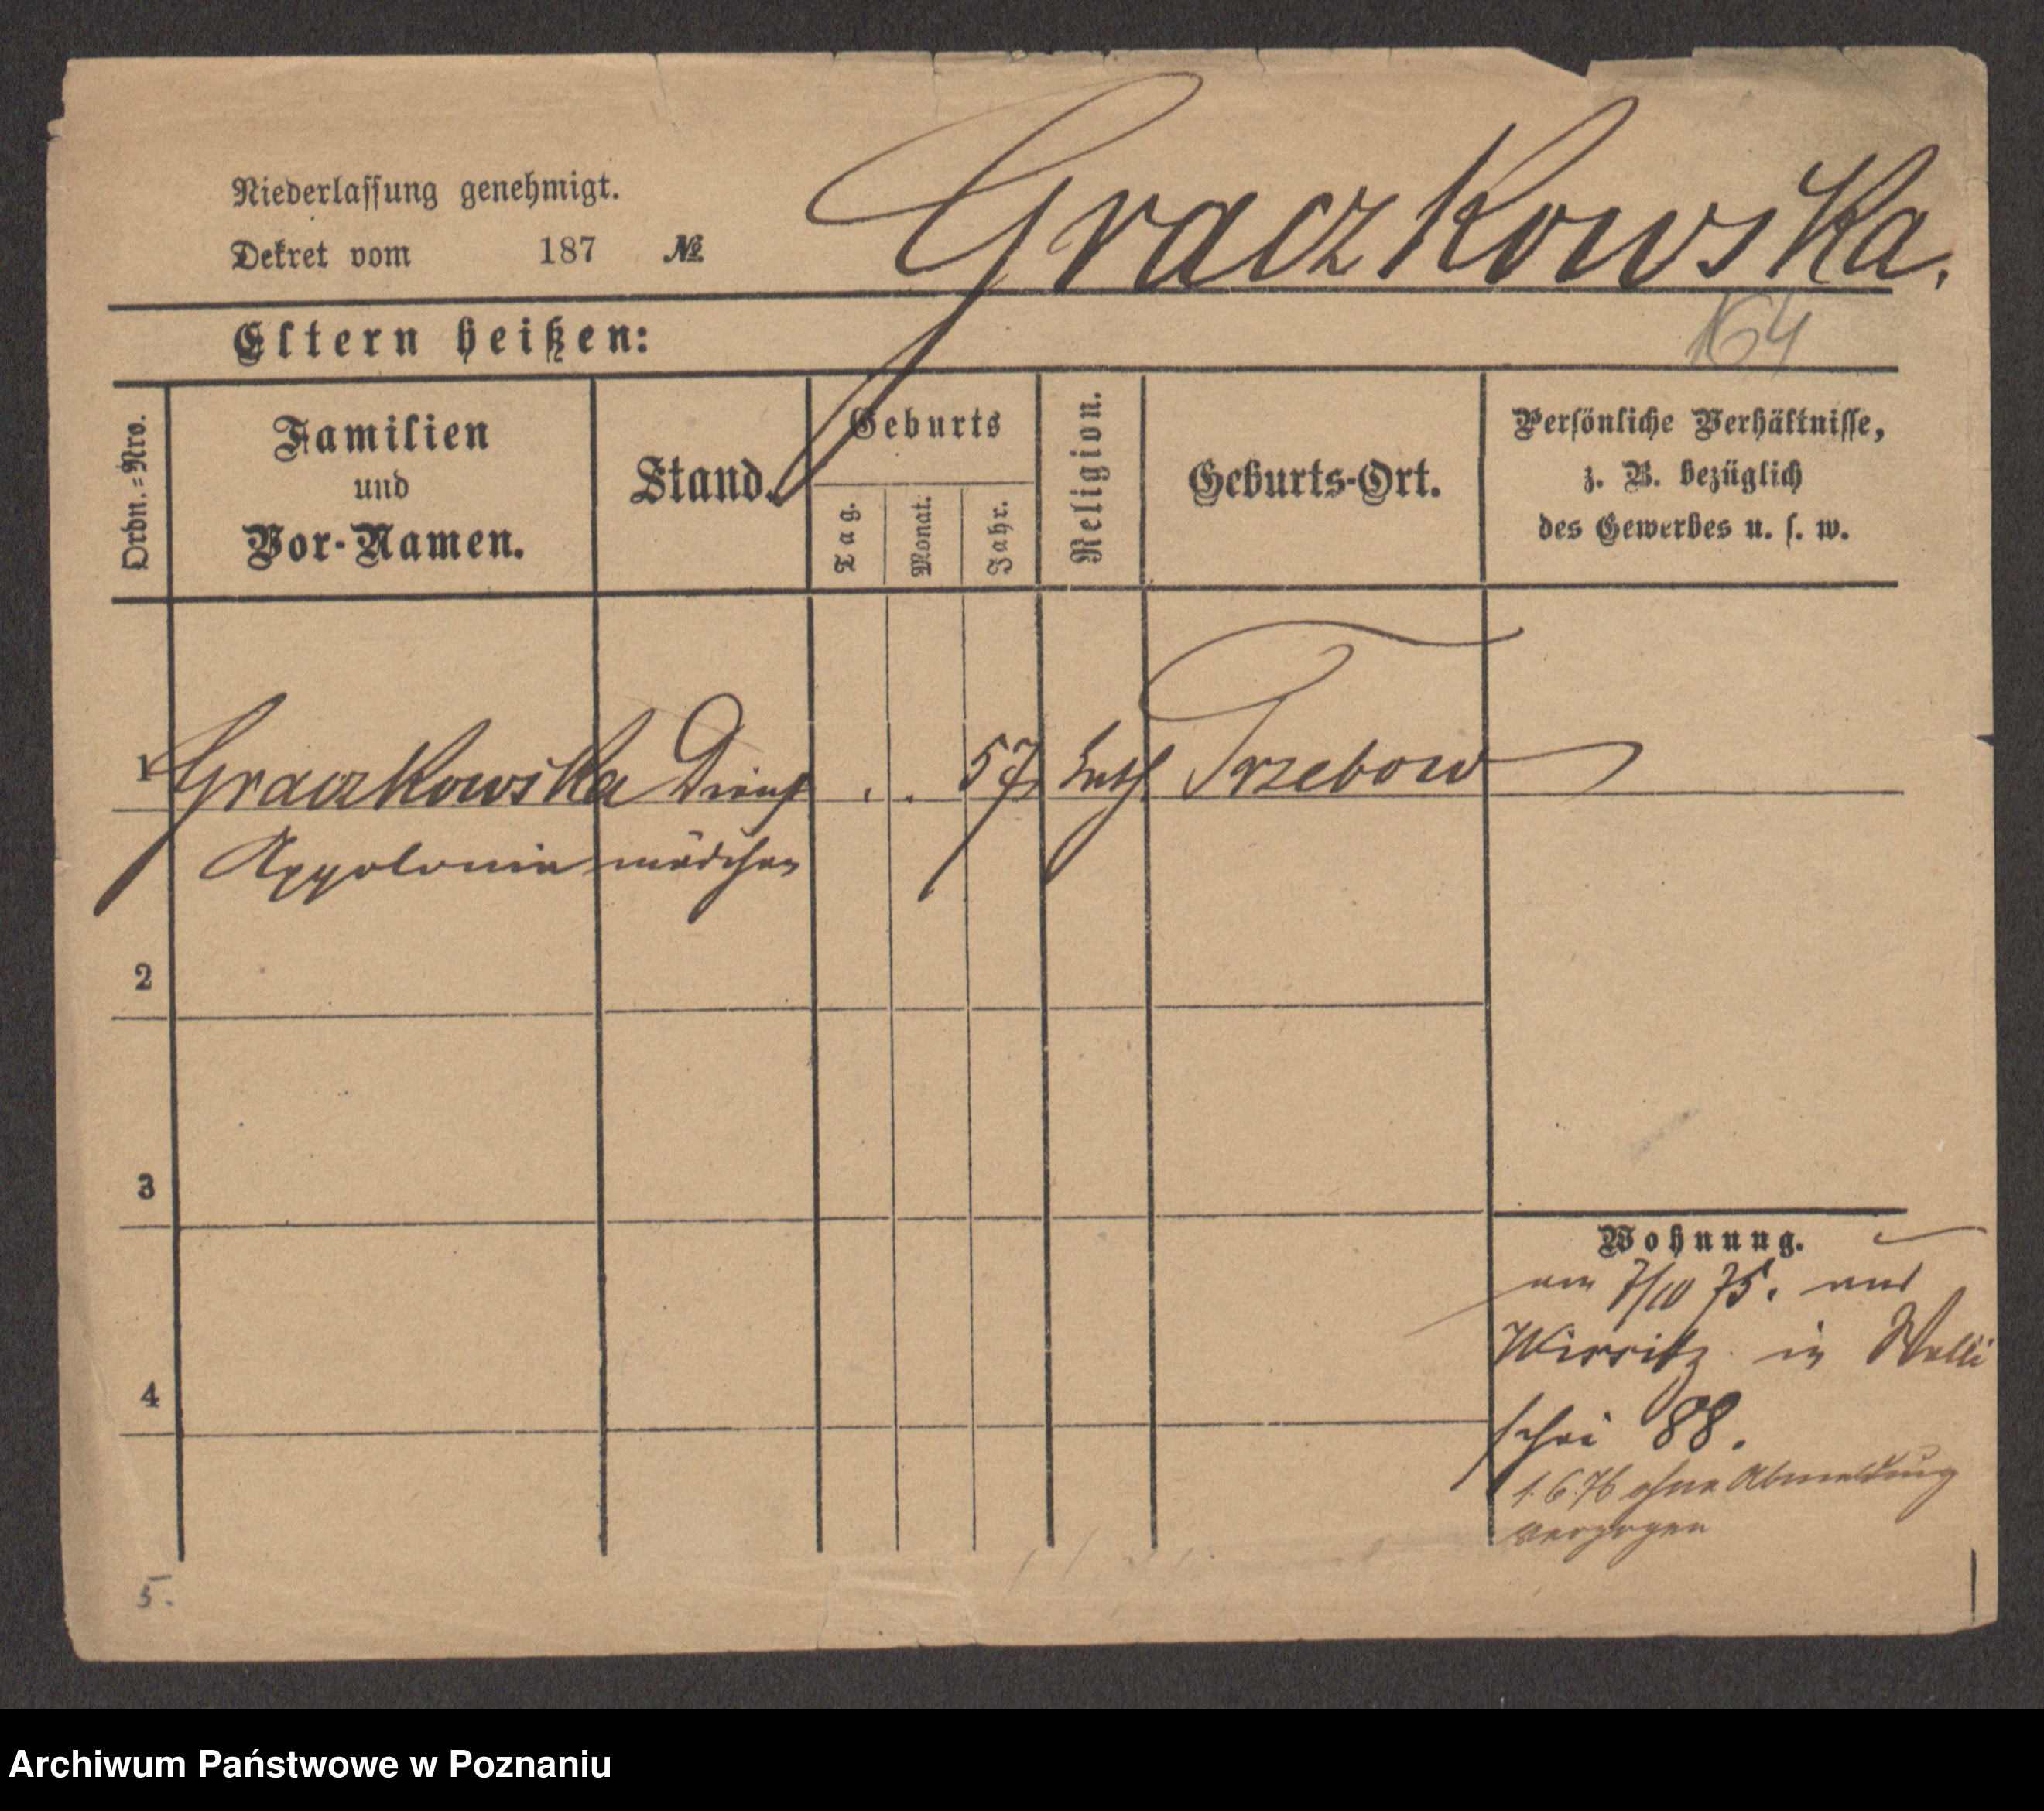 Niederlassung genehmigt.
Dekret vom 187 №
Graczkowska.
Eltern heißen:
164
Ordn.=Nro.
Familien
und
Vor-Namen.
Stand.
Geburts
Tag.
Monat.
Jahr.
Religion.
Geburts-Ort.
Persönliche Verhältnisse,
z. B. bezüglich
des Gewerbes u. s. w.
1 Graczkowska Dienst . . 57 kath. Trzebow
Appolonia mädchen
2
3
4
5.
Wohnung.
am 7/10 75. aus
Wirsitz in Walli
schei 88.
1.6.76 ohne Abmeldung
verzogen
Archiwum Państwowe w Poznaniu